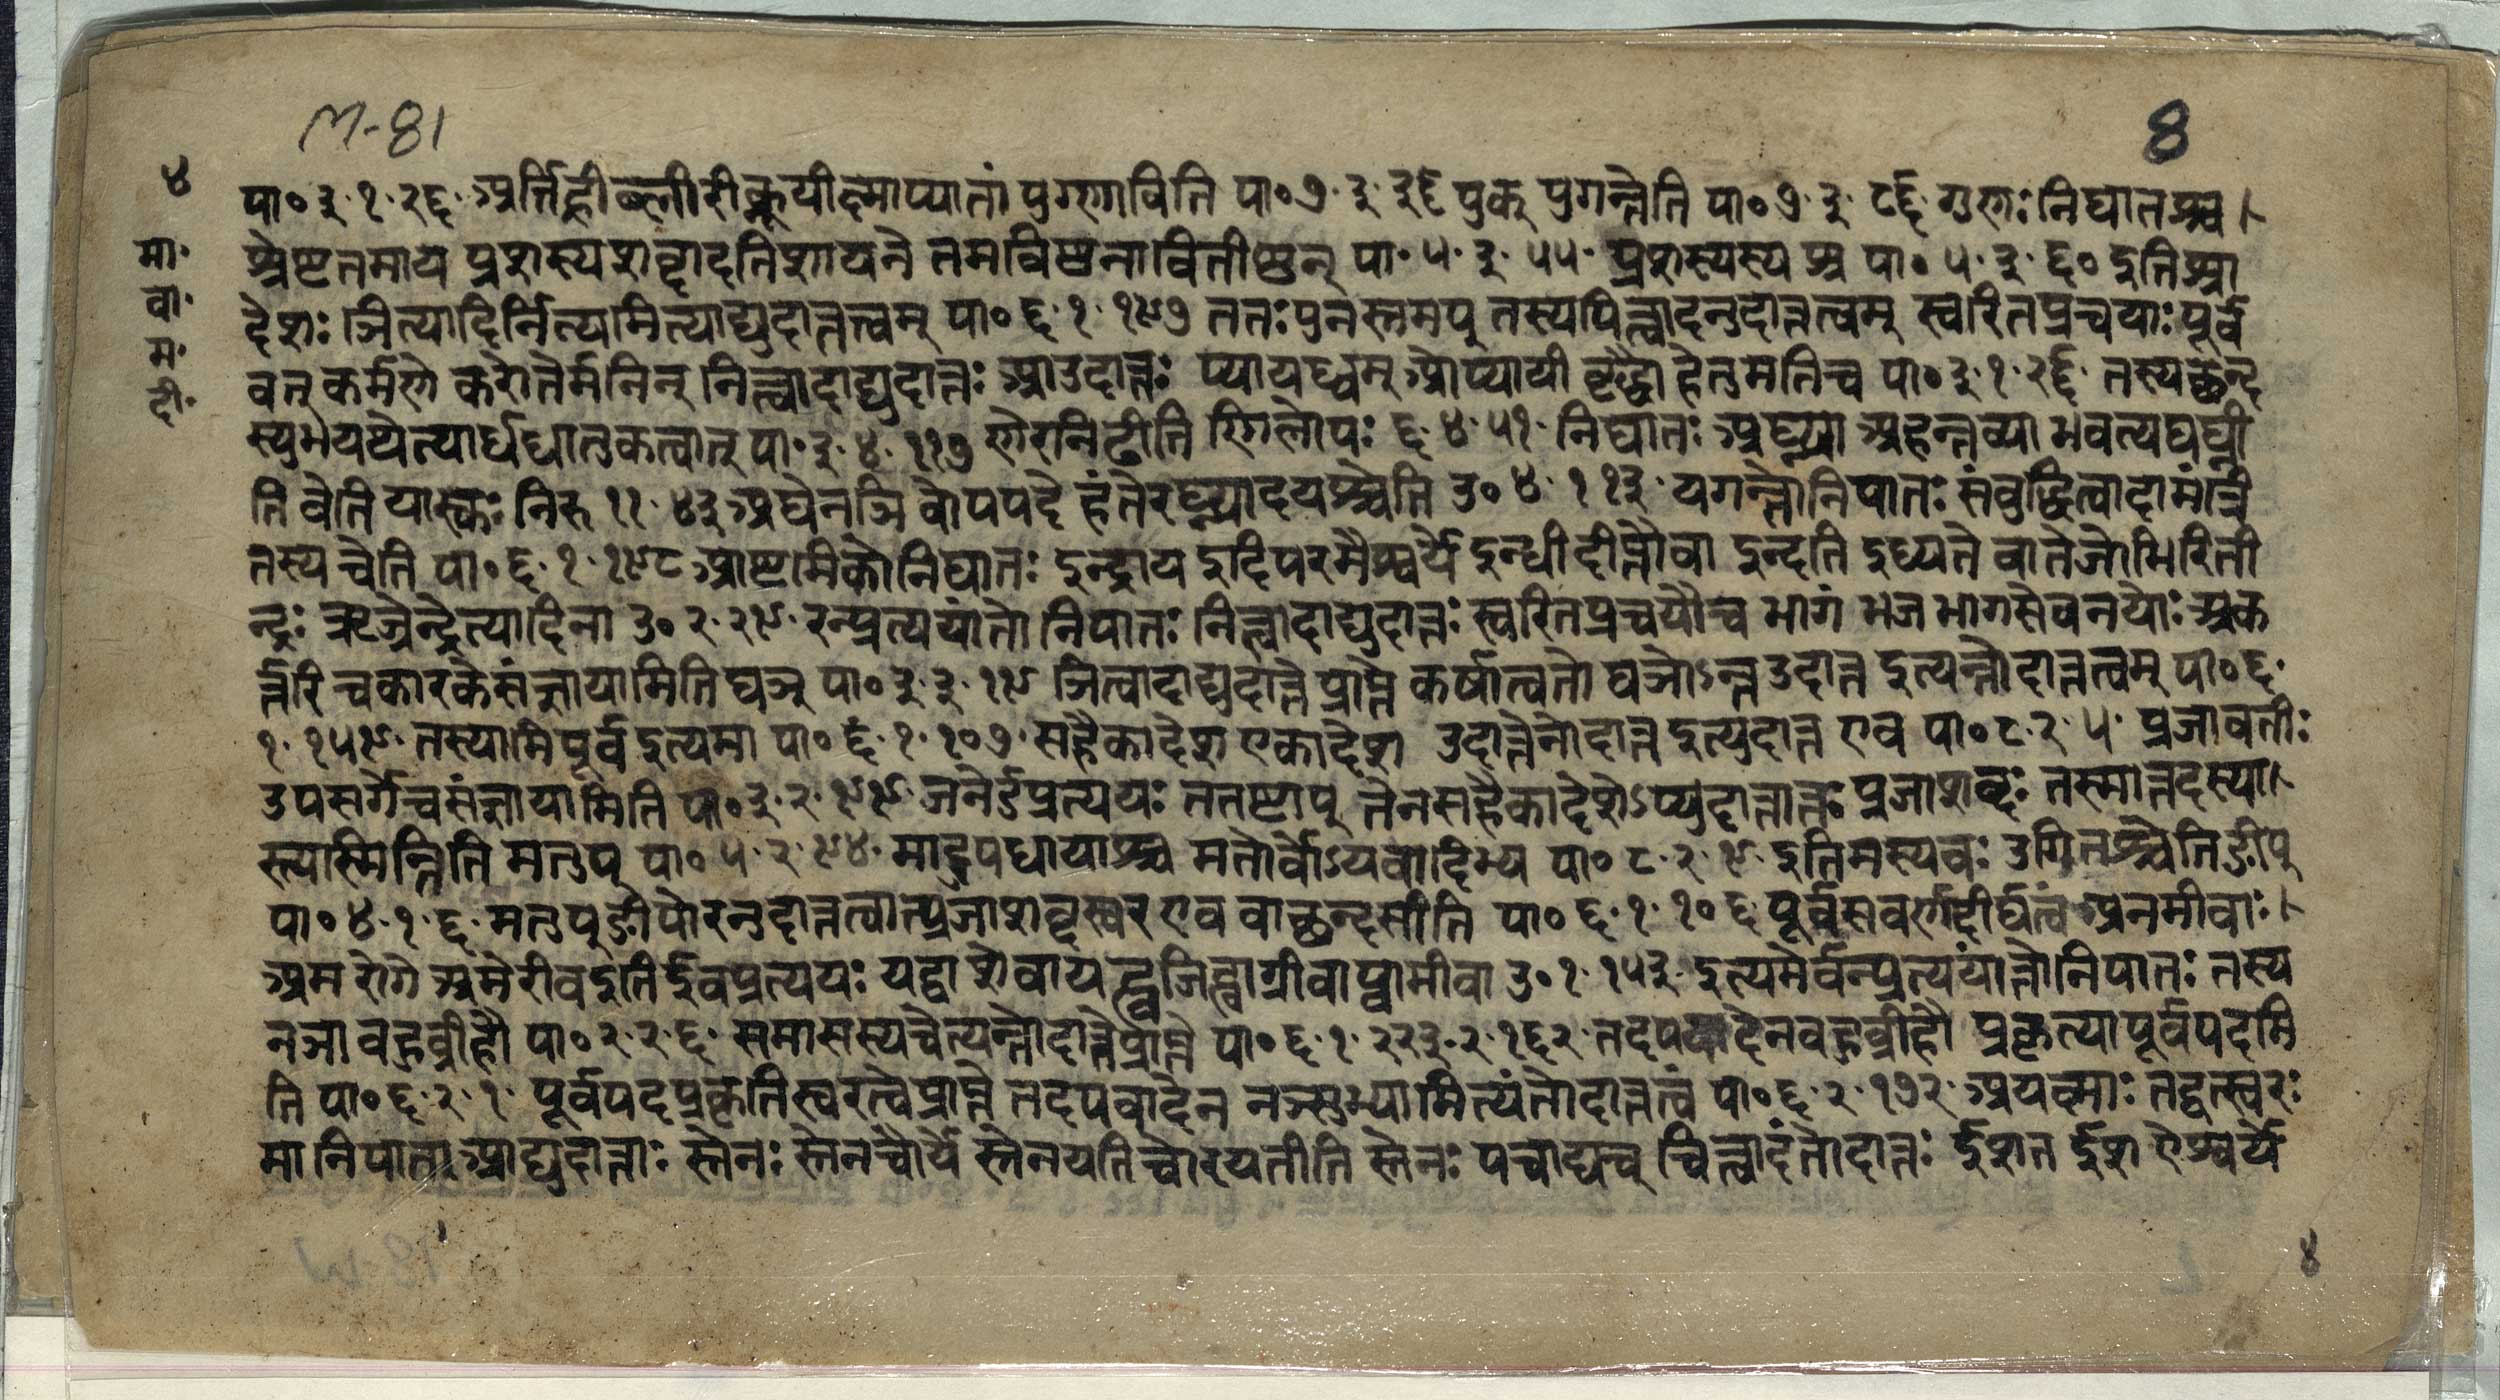 M-81
8
४
मा॰
वा॰
म॰
दी॰
पा॰ ३॰ १॰ २६॰ अर्त्तिह्रीब्लीरीक्नूयीक्ष्माय्यातां पुग्णाविति पा॰ ७॰ ३॰ ३६ पुक् पुगन्तेति पा॰ ७॰ ३॰ ८६॰ गुणः निघातश्च ।
श्रेष्टतमाय प्रशस्यशब्दादतिशायने तमबिष्ठनावितीष्ठन् पा॰ ५॰ ३॰ ५५॰ प्रशस्यस्य श्र पा॰ ५॰ ३॰ ६० इति श्रा
देशः ञित्यादिर्नित्यमित्याद्युदात्तत्वम् पा॰ ६॰ १॰ १९७ ततः पुनस्तमप् तस्य पित्त्वादनुदात्तत्वम् स्वरितप्रचयाः पूर्व
वत् कर्मणे करोतेर्मनिन् नित्त्वादाद्युदात्तः आ उदात्तः प्यायध्वम् ओप्यायी वृद्धौ हेतुमति च पा॰ ३॰ १॰ २६॰ तस्य छन्द
स्युभयथेत्यार्धधातुकत्वात् पा॰ ३॰ ४॰ ११७ णेरनिटीति णिलोपः ६॰ ४॰ ५१॰ निघातः अघ्न्या अहन्तव्या भवत्यघघ्नी
ति वेति यास्कः निरु ११॰ ४३ अघेनञि वोपपदे हंतेरघ्न्यादयश्चेति उ॰ ४॰ ११३॰ यगन्तो निपातः संबुद्धित्वादामंत्रि
तस्य चेति पा॰ ६॰ १॰ १९८ आष्टमिको निघातः इन्द्राय इदि परमैश्वर्ये इन्धी दीप्तौ वा इन्दति इध्यते वा तेजोभिरिती
न्द्रः ऋज्रेन्द्रेत्यादिना उ॰ २॰ २९॰ रन्प्रत्ययांतो निपातः नित्त्वादाद्युदात्तः स्वरितप्रचयौ च भागं भज भागसेवनयोः अक
र्त्तरि च कारके संज्ञायामिति घञ् पा॰ ३॰ ३॰ १९ ञित्वादाद्युदात्ते प्राप्ते कर्षात्वतो घञोऽन्त उदात्त इत्यन्तोदात्तत्वम् पा॰ ६॰
१॰ १५९॰ तस्यामि पूर्व इत्यमा पा॰ ६॰ १॰ १०७॰ सहैकादेश एकादेश उदात्तेनोदात्त इत्युदात्त एव पा॰ ८॰ २॰ ५॰ प्रजावतीः
उपसर्गे च संज्ञायामिति पा॰ ३॰ २॰ ९९॰ जनेर्डप्रत्ययः ततष्टाप् तेन सहैकादेशेऽप्युदात्तान्तः प्रजाशब्दः तस्मात्तदस्या
स्त्यास्मिन्निति मतुप् पा॰ ५॰ २॰ ९४॰ मादुपधायाश्च मतोर्वोऽयवादिभ्य पा॰ ८॰ २॰ ९॰ इति मस्य वः उगितश्चेति ङीप्
पा॰ ४॰ १॰ ६॰ मतुप्ङीपोरनुदात्तत्वात्प्रजाशब्दस्वर एव वाछन्दसीति पा॰ ६॰ १॰ १०६॰ पूर्वसवर्णदीर्घत्वं अनमीवाः ।
अम रोगे अमेरीव इति र्इवप्रत्ययः यद्वा शेवायह्वजिह्वाग्रीवाप्वामीवा उ॰ १॰ १५३॰ इत्यमेर्वन्प्रत्ययांन्तो निपातः तस्य
नञा वहुव्रीहौ पा॰ २॰ २॰ ६॰ समासस्य चेत्यन्तोदात्ते प्राप्ते पा॰ ६॰ १॰ २२३॰ २॰ १६२॰ तदपवादेन वहुव्रीहौ प्रकृत्या पूर्वपदमि
ति पा॰ ६॰ २॰ १॰ पूर्वपदप्रकृतिस्वरत्वे प्राप्ते तदपवादेन नञ्सुभ्यामित्यंतोदात्तत्वं पा॰ ६॰ २॰ १७२॰ अयक्ष्माः तद्वत्स्वरः
मा निपाता आद्युदात्ताः स्तेनः स्तेन चौर्ये स्तेनयति चोरयतीति स्तेनः पचाद्यच् चित्त्वादंतोदात्तः र्इशत र्इश ऐश्वर्ये
४